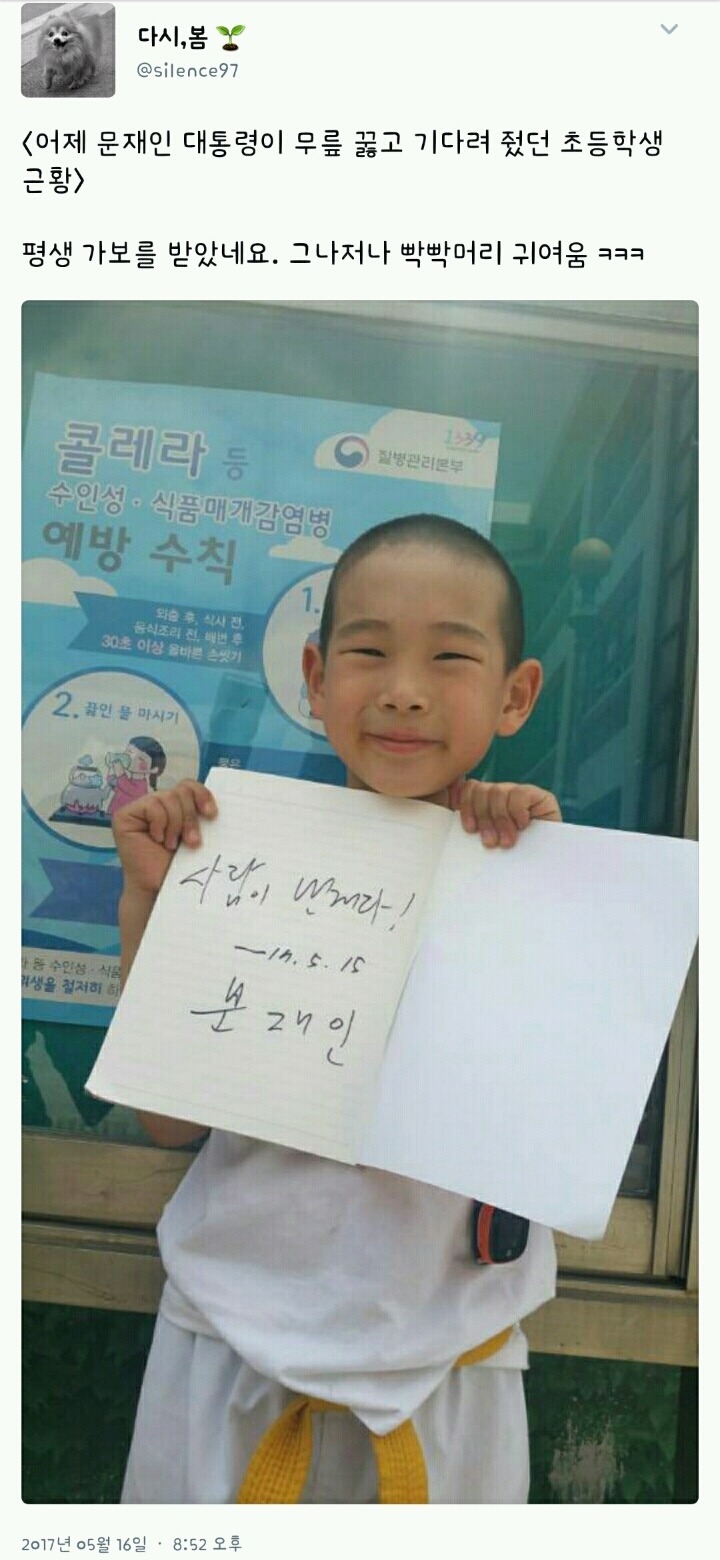 다시,봄 🌱
@silence97
<어제 문재인 대통령이 무릎 꿇고 기다려 줬던 초등학생
근황>
평생 가보를 받았네요. 그나저나 빡빡머리 귀여움 ㅋㅋㅋ
1339
질병관리본부
콜레라 등
수인성·식품매개감염병
예방 수칙
1.
외출 후, 식사 전,
음식조리 전, 배변 후
30초 이상 올바른 손씻기
2. 끓인 물 마시기
사람이 먼저다!
17. 5. 15
문재인
등 수인성·식품
위생을 철저히
2017년 05월 16일 · 8:52 오후